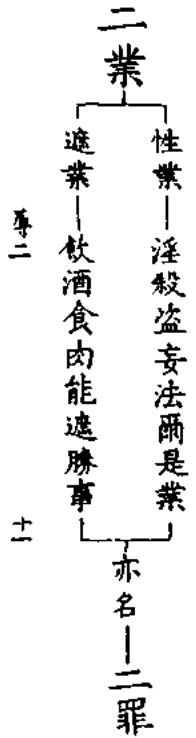 二業
性業 淫殺盗妄法爾是業
遮業 飲酒食肉能遮勝事
亦名 二罪
十一